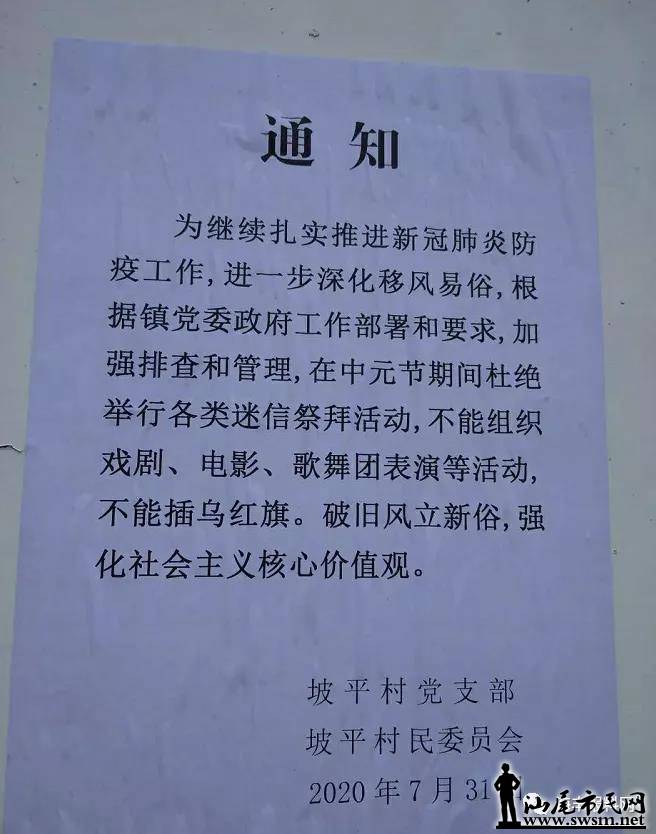 通知
为继续扎实推进新冠肺炎防
疫工作,进一步深化移风易俗,根
据镇党委政府工作部署和要求,加
强排查和管理,在中元节期间杜绝
举行各类迷信祭拜活动,不能组织
戏剧、电影、歌舞团表演等活动,
不能插乌红旗。破旧风立新俗,强
化社会主义核心价值观。
坡平村党支部
坡平村民委员会
2020年7月31
汕尾市民网
www.swsm.net